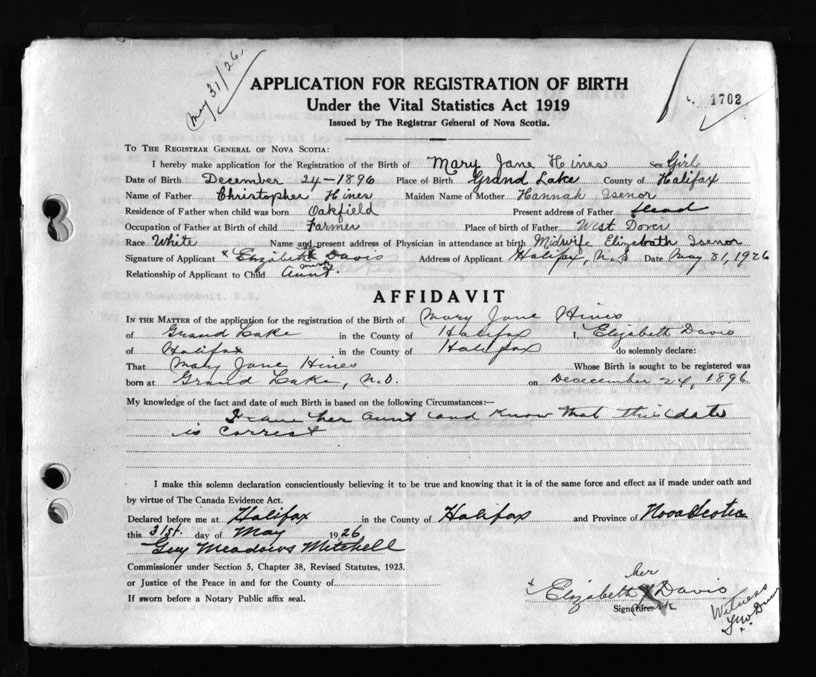 May 31/26.
APPLICATION FOR REGISTRATION OF BIRTH
Under the Vital Statistics Act 1919
Issued by The Registrar General of Nova Scotia.
1702
TO THE REGISTRAR GENERAL OF NOVA SCOTIA:
I hereby make application for the Registration of the Birth of Mary Jane Hines Sex Girl
Date of Birth December 24-1896 Place of Birth Grand Lake County of Halifax
Name of Father Christopher Hines Maiden Name of Mother Hannah Isenor
Residence of Father when child was born Oakfield Present address of Father
Occupation of Father at Birth of child Farmer Place of birth of Father West Dover
Race White Name and present address of Physician in attendance at birth Midwife Elizebath Isenor
Signature of Applicant x Elizabeth Davis Address of Applicant Halifax, N.S Date May 31, 1926
mark
Relationship of Applicant to Child Aunt.
AFFIDAVIT
IN THE MATTER of the application for the registration of the Birth of Mary Jane Hines
of Grand Lake in the County of Halifax I, Elizabeth Davis
of Halifax in the County of Halifax do solemnly declare:
That Mary Jane Hines Whose Birth is sought to be registered was
born at Grand Lake, N.S. on Dececember 24, 1896
My knowledge of the fact and date of such Birth is based on the following Circumstances:—
I am her aunt and know that this date
is correct
I make this solemn declaration conscientiously believing it to be true and knowing that it is of the same force and effect as if made under oath and
by virtue of The Canada Evidence Act.
Declared before me at Halifax in the County of Halifax and Province of Nova Scotia
this 31st. day of May 1926
Guy Meadows Mitchell
Commissioner under Section 5, Chapter 38, Revised Statutes, 1923.
or Justice of the Peace in and for the County of
If sworn before a Notary Public affix seal.
her
x Elizabeth X Davis
Signature mark
Witness